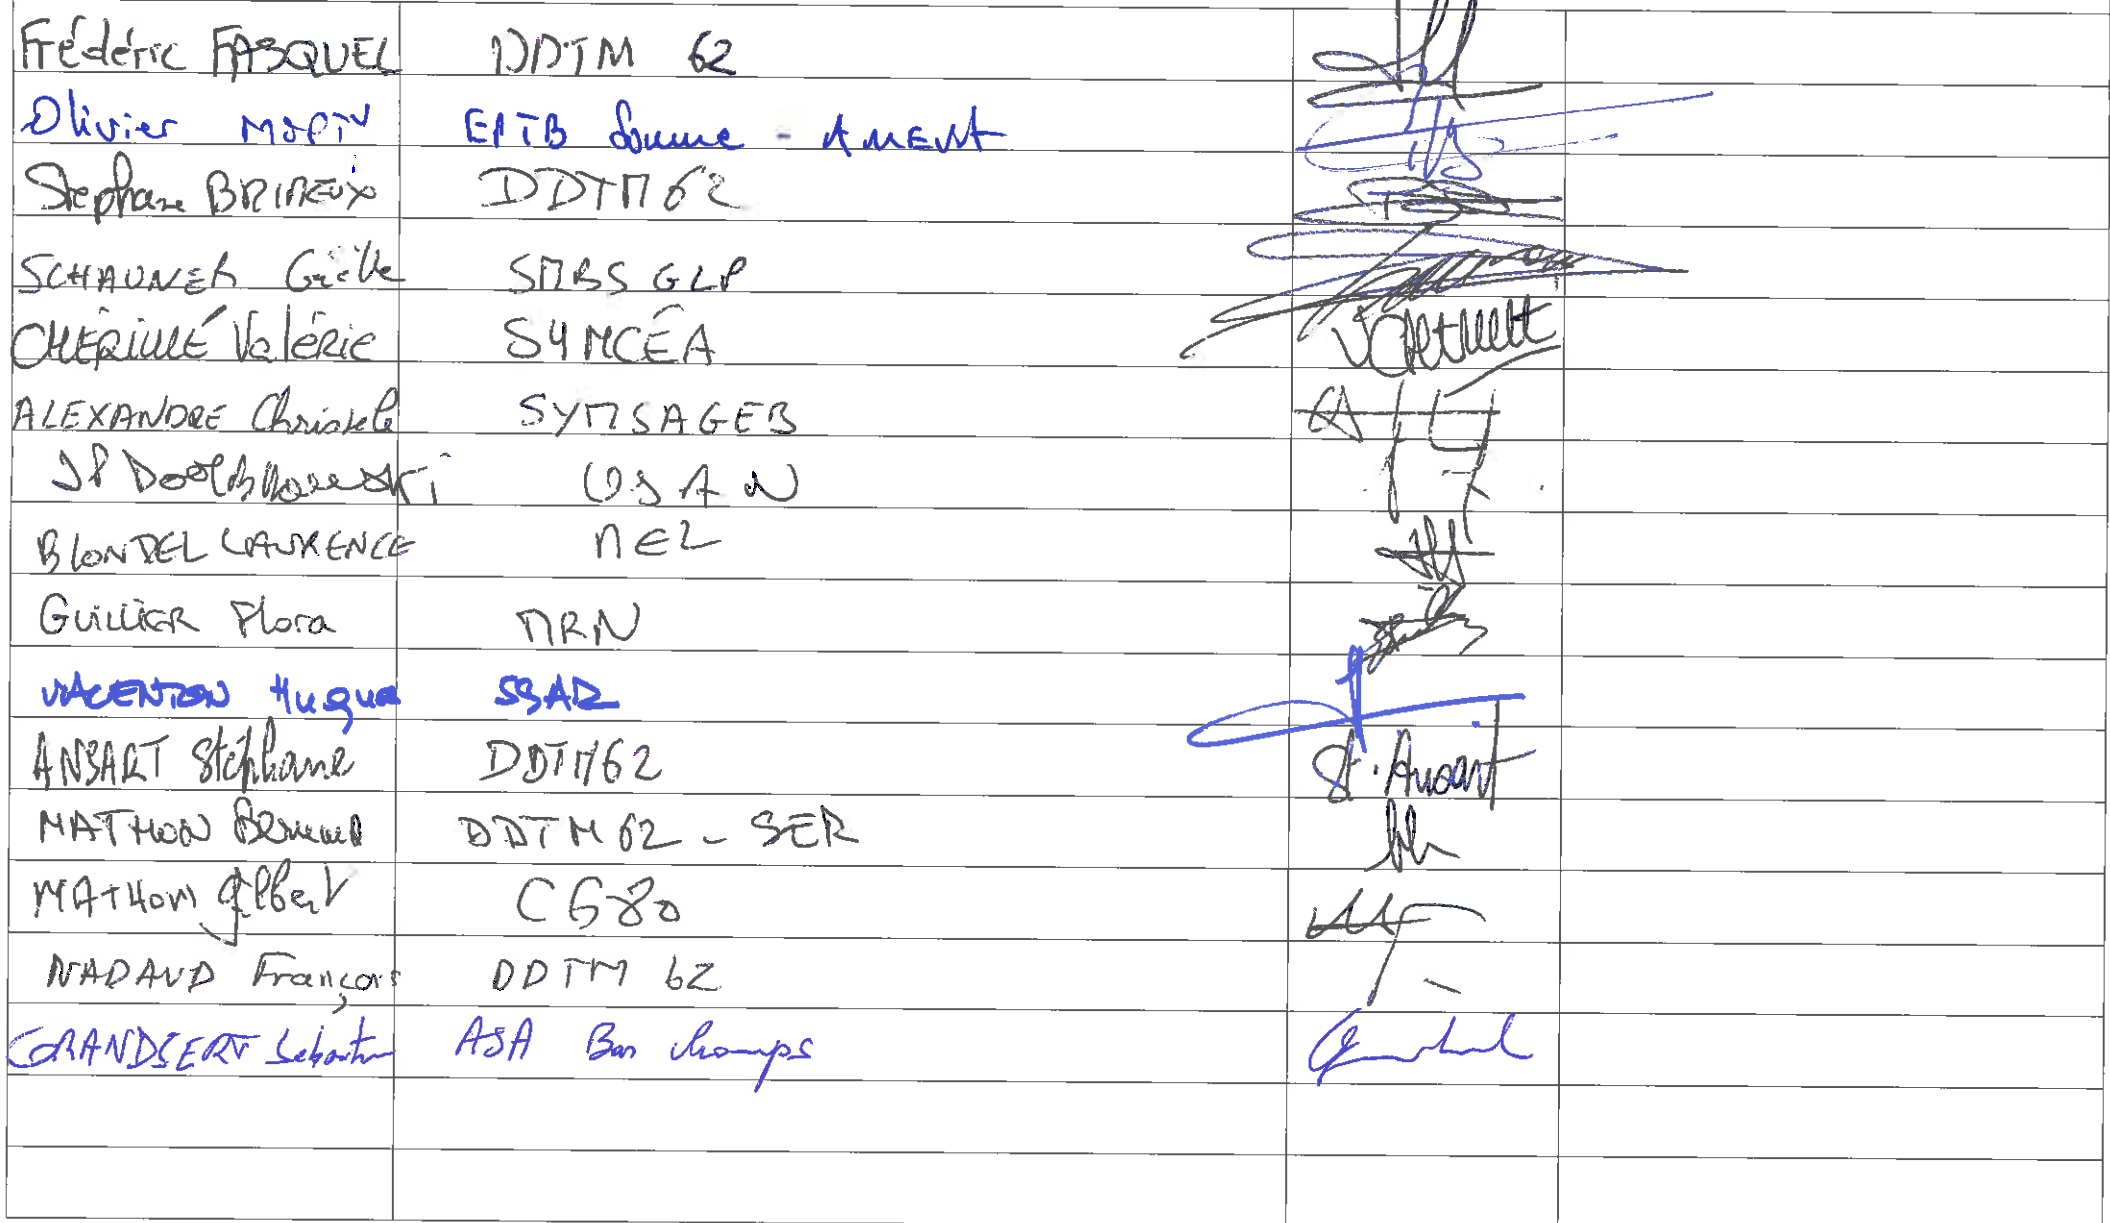 Frédéric FASQUEL DDTM 62
Olivier EPTB Somme - AMEVA
Stéphane BRIMEUX DDTM62
SCHAUNER Gaëlle SMBS GLP
Valérie SYMCÉA
ALEXANDRE Christele SYMSAGEB
JP USAN
BLONDEL LAURENCE MEL
GUILLIER Flora MRN
Hugue
ANSART Stéphane DDTM62 St. Ansart
MATHON DDTM62 - SER
MATHON gilbert CG80
NADAUD François DDTM 62
GRANDSERT Sébastien ASA Bas champs